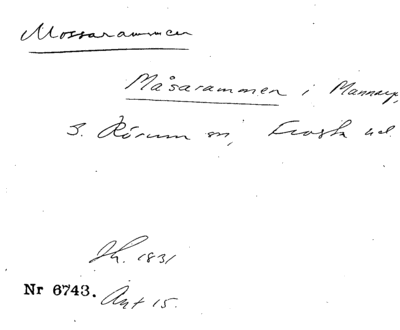 Mossarammen
Måsarammen i Mannarp,
S. Rörum sn, Frosta hd
Sk. 1831
Nr 6743. Akt 15.